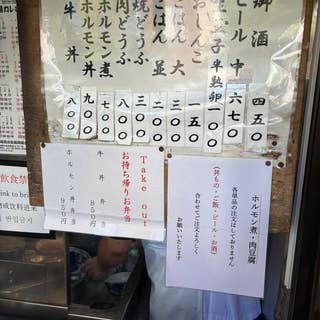 御酒 四五〇
ビール 中 六七〇
玉子 半熟卵 一〇〇
おしんこ 一五〇
ごはん 大 三〇〇
ごはん 並 二〇〇
焼どうふ 三〇〇
肉どうふ 八〇〇
ホルモン煮 七〇〇
ホルモン丼 九〇〇
牛丼 八〇〇
ホルモン煮・肉豆腐
各単品の注文はしておりません
(丼もの・ご飯・ビール・お酒)
合わせてご注文よろしく
お願いいたします
Take out
お持ち帰りお弁当
牛丼弁当 850円
ホルモン丼弁当 950円
飲食禁